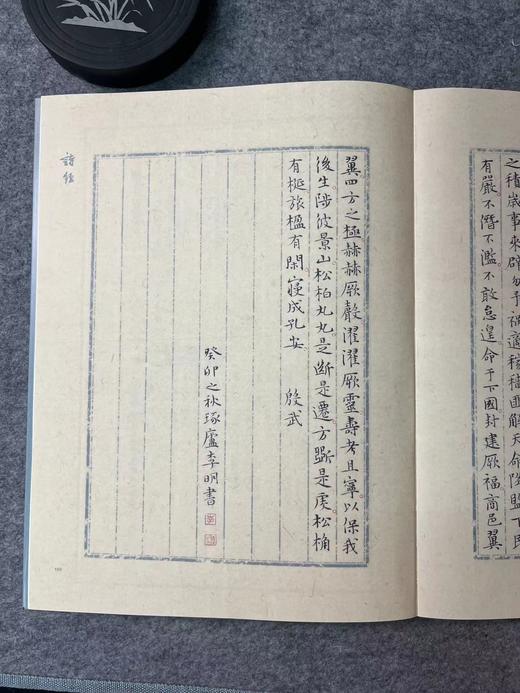 之積歲事來辟勿予禍適稼穡匪解天命降監下民
有嚴不僭不濫不敢怠遑命于下國封建厥福商邑翼
翼四方之極赫赫厥聲濯濯厥靈壽考且寧以保我
後生陟彼景山松柏丸丸是斷是遷方斲是虔松桷
有梴旅楹有閑寢成孔安 殷武
癸卯之秋琢廬李明書
詩經